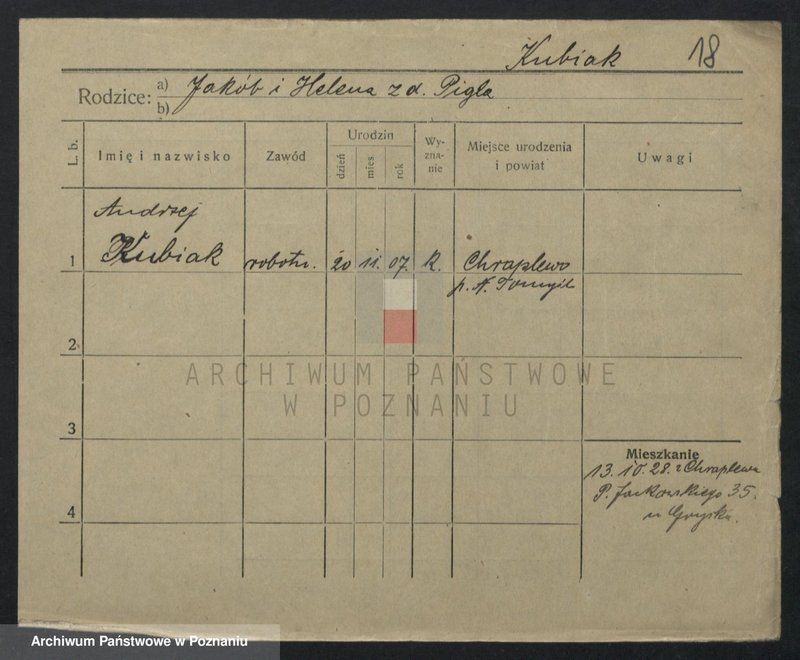 Kubiak 18
Rodzice: a) Jakób i Helena z d. Pigla
b)
L. b. Imię i nazwisko Zawód Urodzin dzień mies. rok Wy-zna-nie Miejsce urodzenia i powiat Uwagi
Andrzej
1 Kubiak robotn. 20 11. 07. k. Chraplewo
p. N. Tomyśl
2
ARCHIWUM PAŃSTWOWE
W POZNANIU
3
Mieszkanie
13. 10. 28. z Chraplewa
P. Jackowskiego 35.
4
u
Archiwum Państwowe w Poznaniu